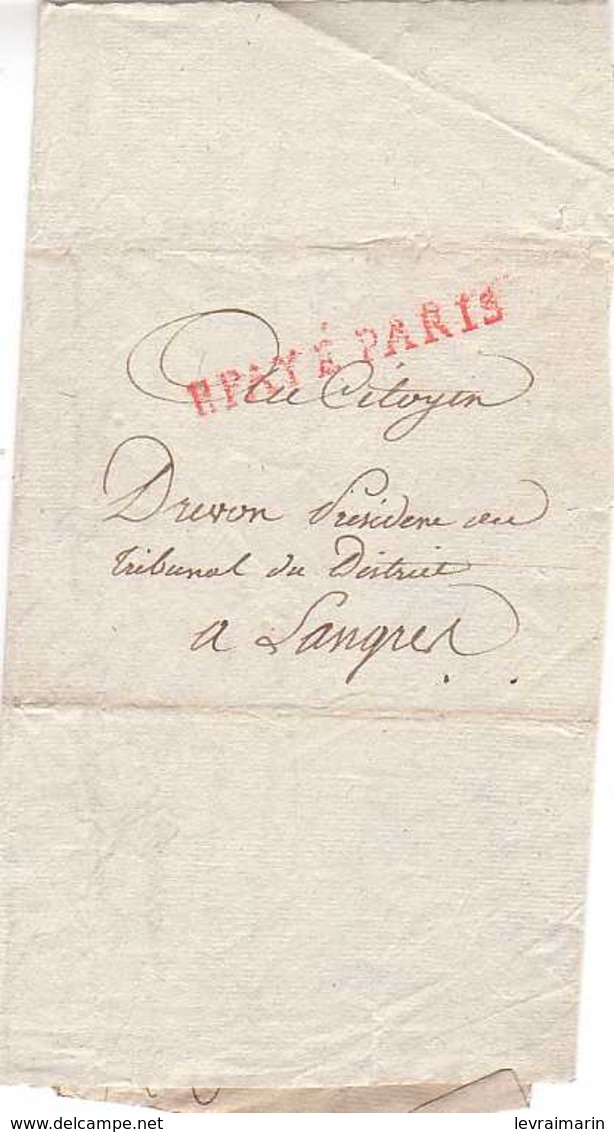 P.PAYÉ PARIS
Au Citoyen
Drevon Président au
tribunal du District
a Langres
www.delcampe.net
levraimarin